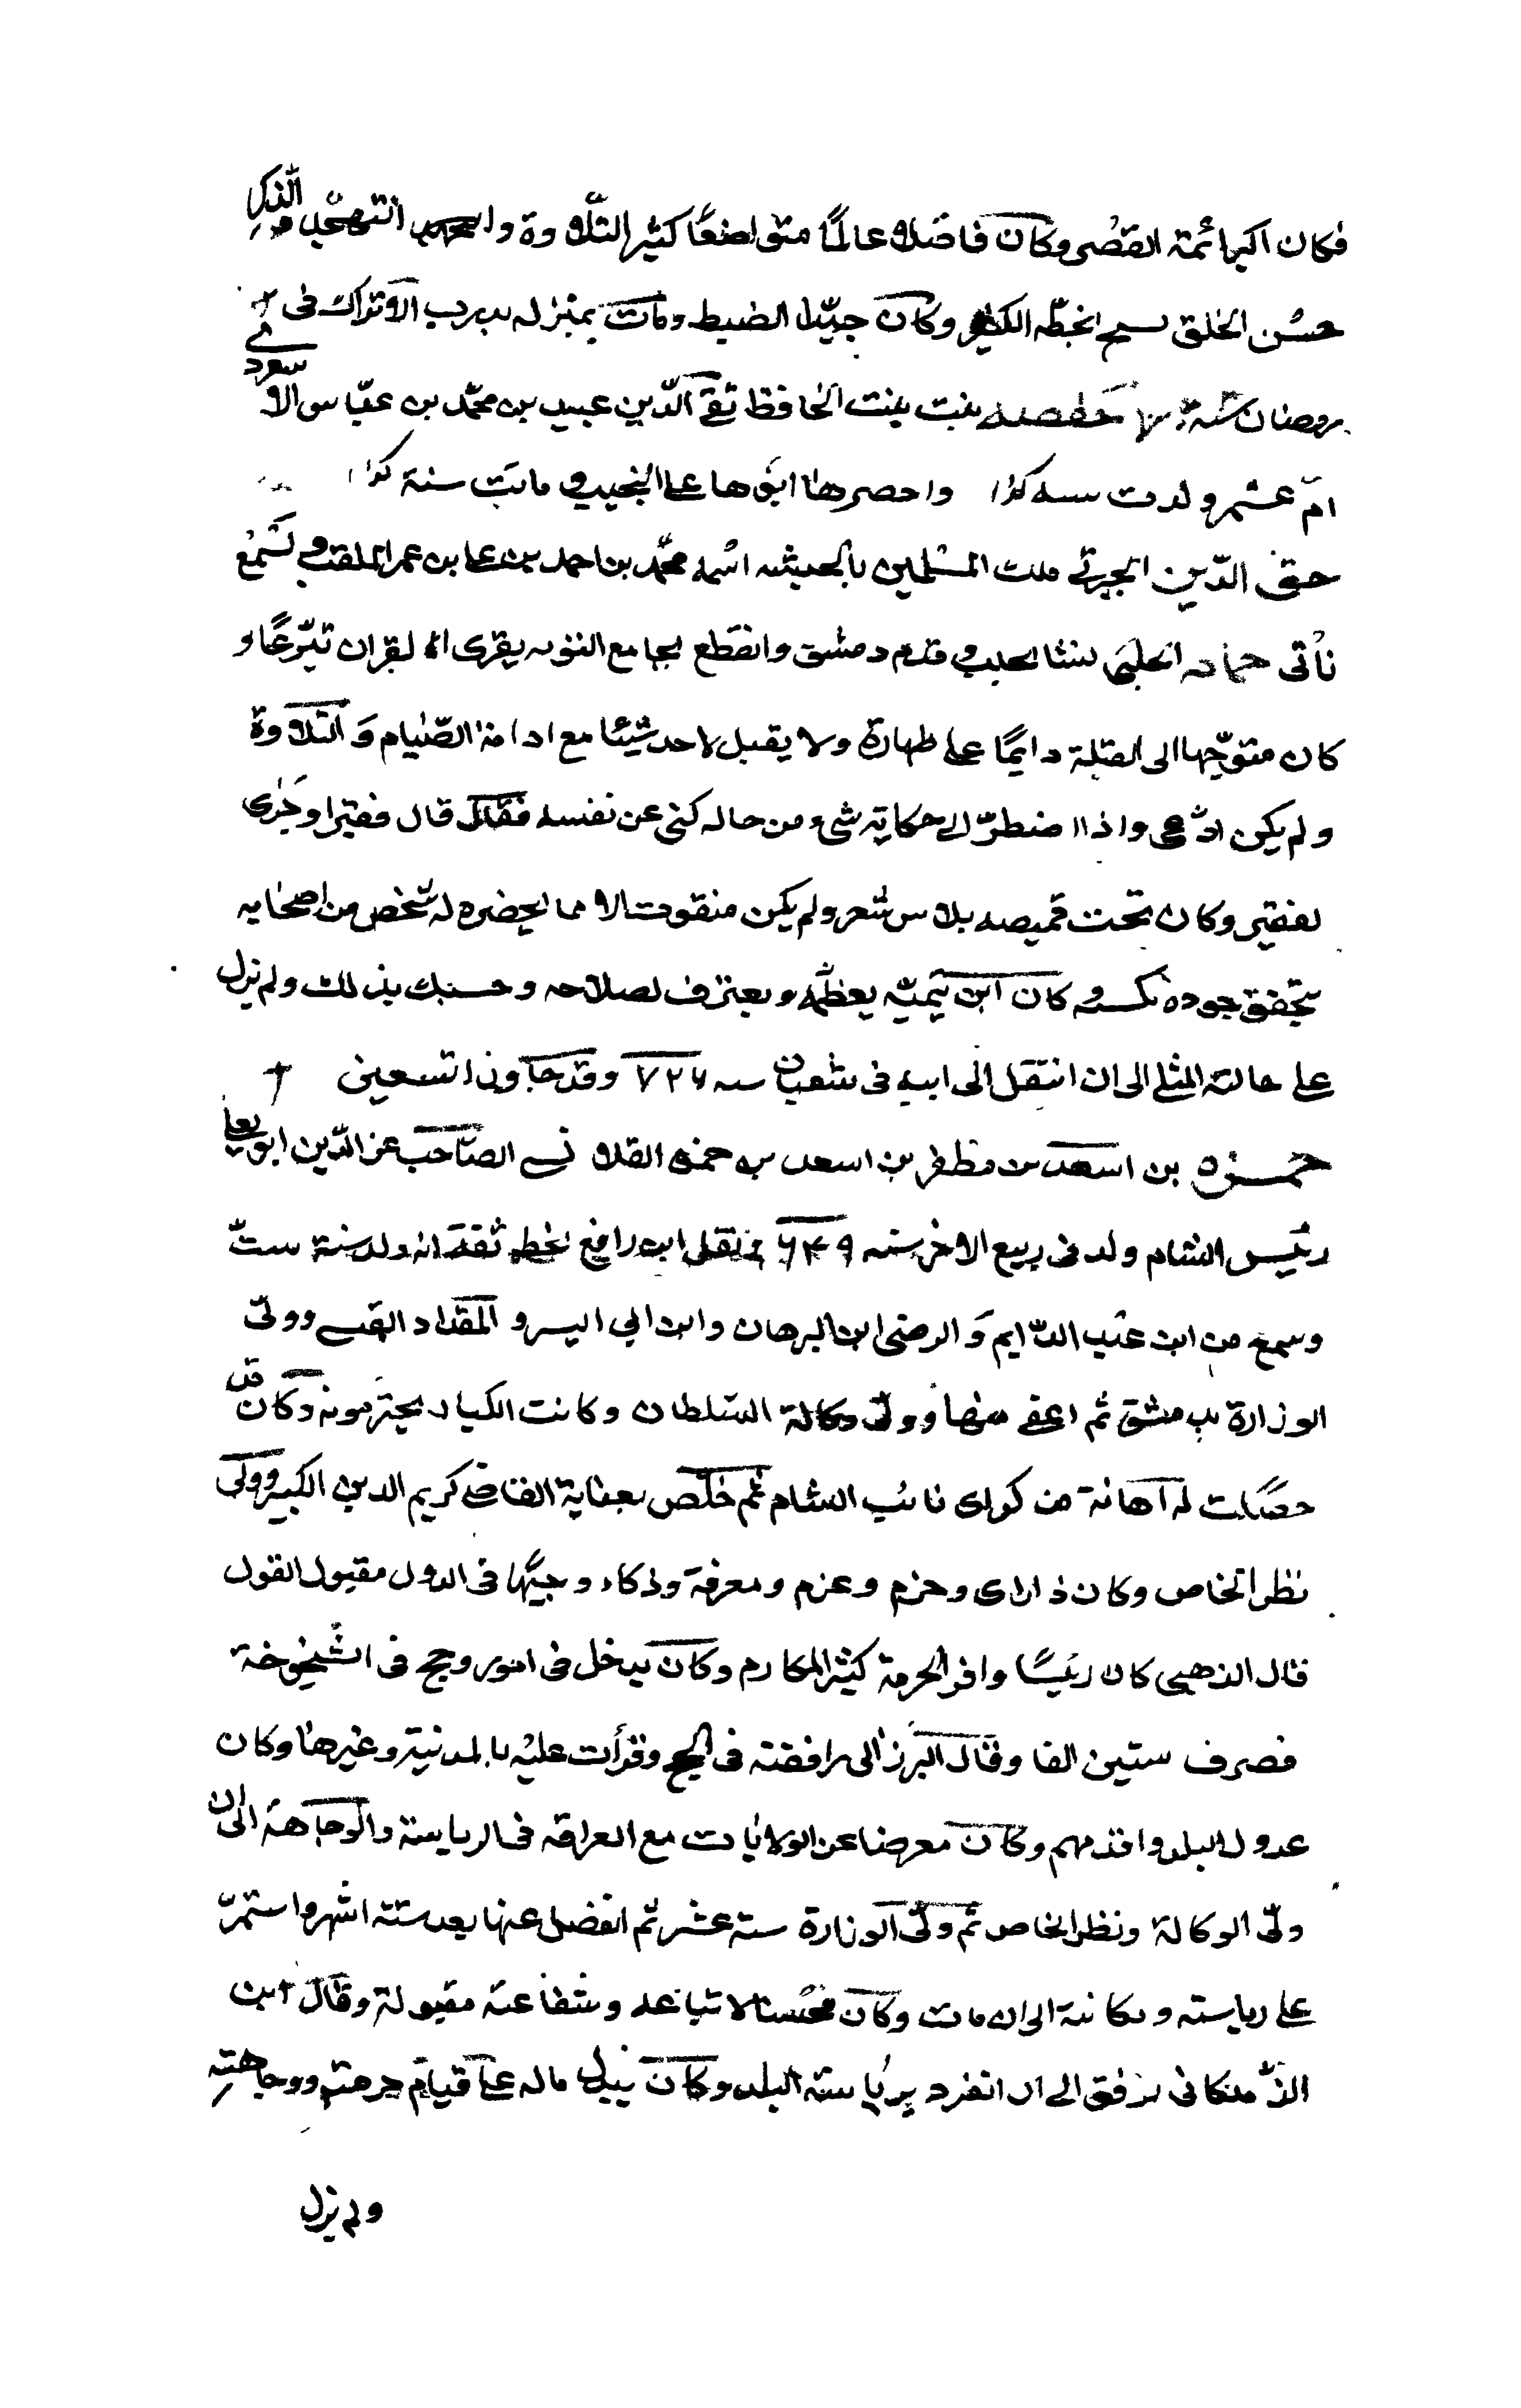 فكان اكبر ائمة القصر وكان فاضلا عالمًا متواضعًا كثير التلاوة والتهجّد والذكر
حسُن الخلق نسخ بخطّه الكثير وكان جيّدا الضبط ومات بمنزله بدرب الاتراك فى
رمضان حفصه بنت بنت الحافظ تقى الدّين عبيد بن محمّد بن عبّاس الاسعردى
امّ عمر ولدت سنه كذا واحضرها ابوها على النجيب و ماتت سنة كذا
حق الدّين الجبرتى ملك المسلمين بالحبشه اسمه محمّد بن احمد بن على بن عمر الملقب
ياتى حماد الحلبى نشا بحلب و قدم دمشق وانقطع بجامع التوبه يقرى القران تبرّعًا و
كان متوجّها الى القبلة دايمًا على طهارة ولا يقبل لاحد شيئا مع ادامة الصّيام وَ التلاوة
ولم يكن ادّعى واذا اضطرّ الى حكاية شىء من حاله كنى عن نفسه فقال قال فقيرا وجرى
لفقير وكان تحت قميصه بلاس شعر ولم يكن منقوت الا مما يحضره له شخص من اصحابه
يتحقق جوده كسبه و كان ابن تيميّه يعظّمه و يعترف بصلاحه وحسبك بذلك ولم يزل
على حالته المثلى الى ان انتقل الى ابيه فى شعبان سنه ٧٢٦ وقد جاوز التسعين
حمزه بن اسعد بن مظفر بن اسعد بن حمزه القلانسى الصّاحب عز الدّين ابو يعلى
رئيس الشام ولد فى ربيع الاخر سنه ٦٤٩ و نقل ابن رافع بخط ثقة انه ولد سنة ستّ
وسمع من ابن عبد الدّايم وَ الرضى ابن البرهان وابن ابى اليسر و المقداد القيسى وولّى
الوزارة بدمشق ثم اعفى منها وولّى وكالة السّلطان وكانت الكبار يحترمونه وكان قد
حصلت له اهانة من كراى نائب الشام ثم خلّص بعناية القاضى كريم الدين الكبير وولّى
نظر الخاص وكان ذا راى وحزم وعزم ومعرفة وذكاء وجيهًا فى الدول مقبول القول
قال الذهبى كان رئيسًا وافر الحرمة كثير المكارم وكان يدخل فى امور وحج فى الشيخوخة
فصرف ستين الفا وقال البرزالى رافقته فى الحج وقرأت عليه بالمدينة وغيرها وكان
عدول البلد واقدمهم وكان معرضا عن الولايات مع العراقه فى الرياسة والوجاهة الى ان
ولّى الوكالة ونظر الخاص ثم ولّى الوزارة ستة عشر ثم انفصل عنها بعد ستة اشهر واستمرّ
على رياسته ومكانته الى ان مات وكان محسنا لاتباعه وشفاعته مقبولة وقال ابن
الزّملكانى ترفق الى ان انفرد برياسة البلد وكان يبذل ماله على قيام حرمته ووجاهته
ولم يزل